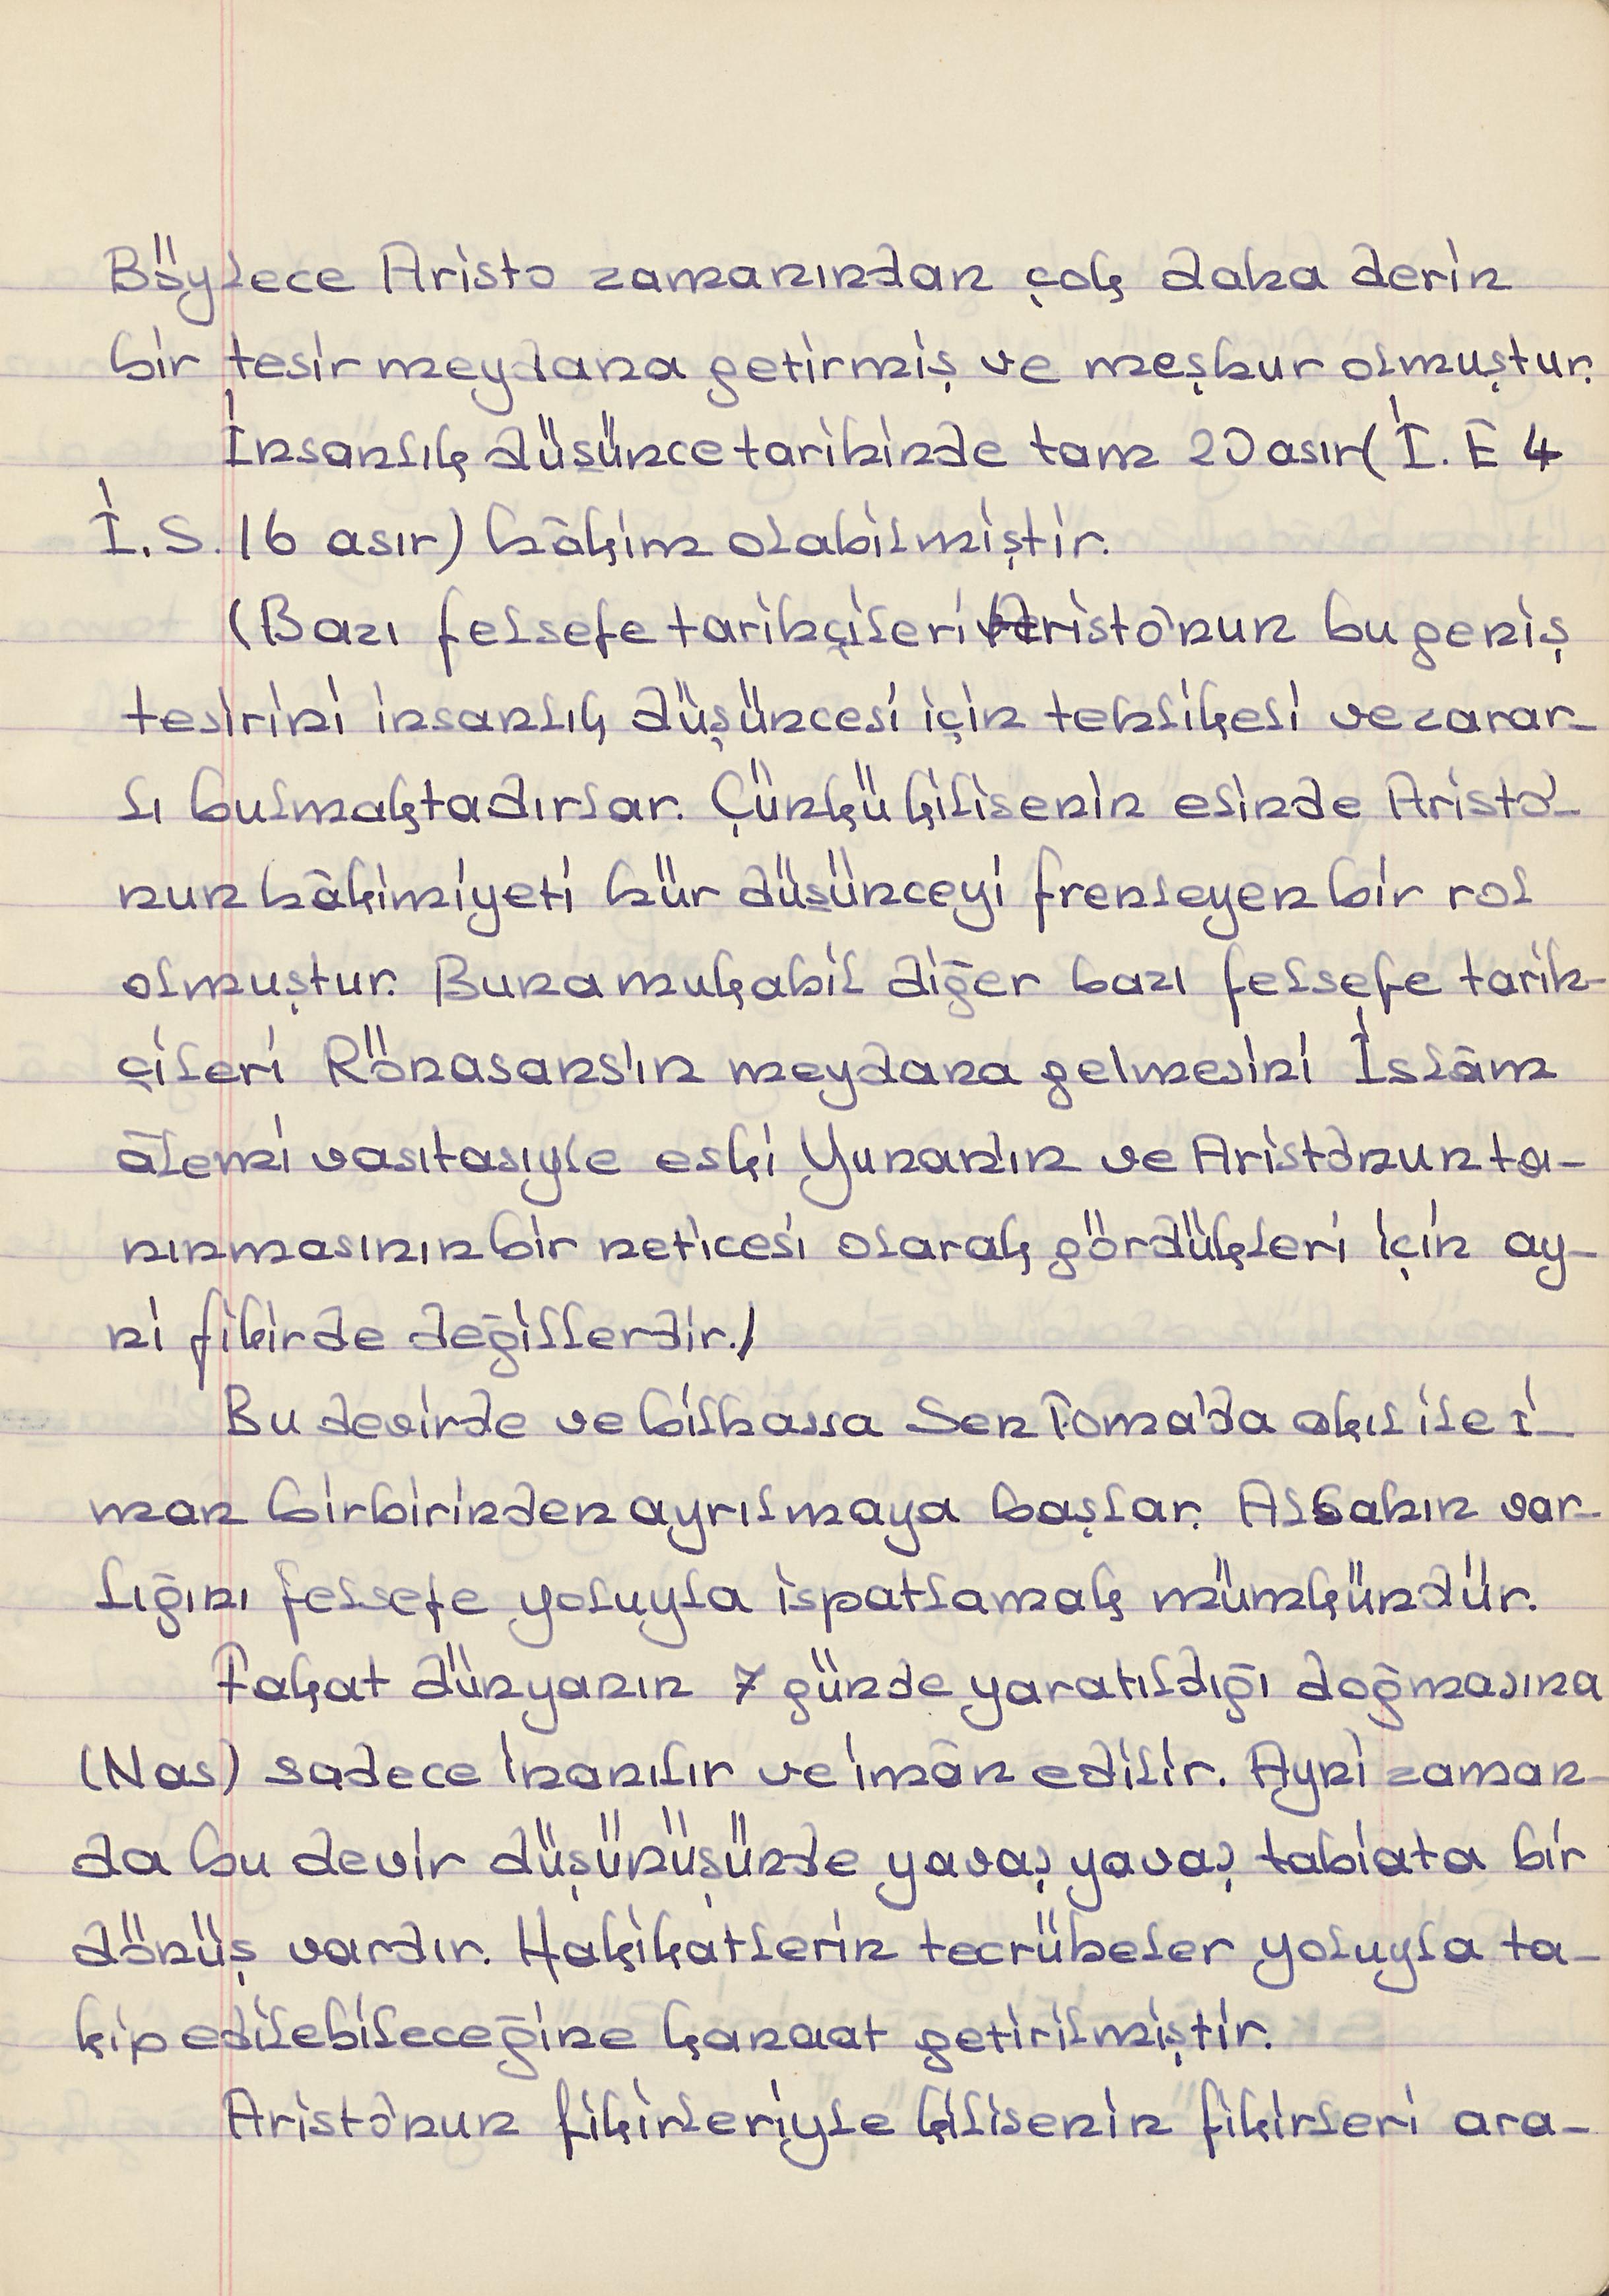 Böylece Aristo zamanından çok daha derin
bir tesir meydana getirmiş ve meşhur olmuştur.
İnsanlık düşünce tarihinde tam 20 asır (İ. E 4
İ. S. 16 asır) hâkim olabilmiştir.
(Bazı felsefe tarihçileri Aristo'nun bu geniş
tesirini insanlık düşüncesi için tehlikeli ve zarar-
lı bulmaktadırlar. Çünkü kilisenin elinde Aristo'-
nun hâkimiyeti hür düşünceyi frenleyen bir rol
olmuştur. Buna mukabil diğer bazı felsefe tarih-
çileri Rönasans'ın meydana gelmesini İslâm
âlemi vasıtasıyle eski Yunan'ın ve Aristo'nun ta-
nınmasının bir neticesi olarak gördükleri için ay-
ni fikirde değillerdir.)
Bu devirde ve bilhassa Sen Toma'da akıl ile i-
man birbirinden ayrılmaya başlar. Allahın var-
lığını felsefe yoluyla ispatlamak mümkündür.
Fakat dünyanın 7 günde yaratıldığı doğmasına
(Nas) sadece inanılır ve imân edilir. Ayni zaman-
da bu devir düşünüşünde yavaş yavaş tabiata bir
dönüş vardır. Hakikatlerin tecrübeler yoluyla ta-
kip edilebileceğine kanaat getirilmiştir.
Aristo'nun fikirleriyle kilisenin fikirleri ara-